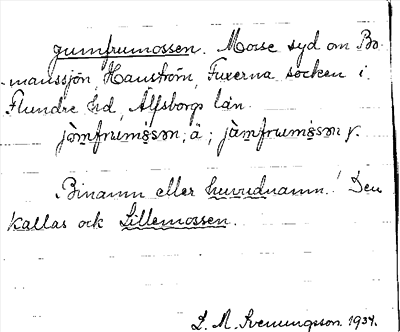 gumfrumossen. Mosse syd om Bo-
manssjön, Hanström, Fuxerna socken i
Flundre hd, Älfsborgs län.
jòmfrumåsən, ä; jàmfrumåsən y.
Binamn eller huvudnamn! Den
kallas ock Lillemossen.
L. M. Svenungsson 1934.